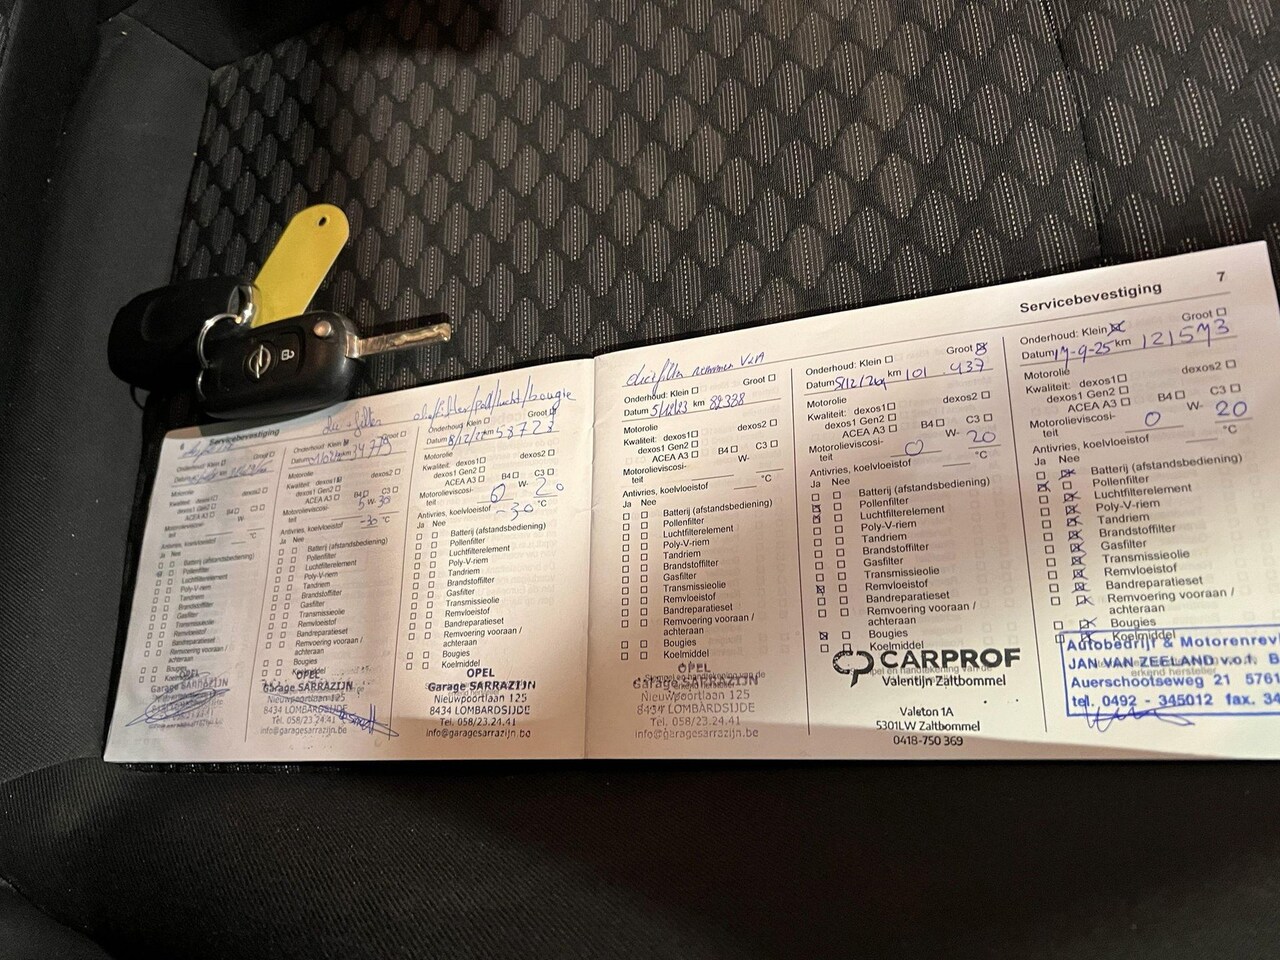 Servicebevestiging
Onderhoud: Klein
Datum
km
Motorolie
Kwaliteit: dexos1
dexos2
dexos1 Gen2
ACEA A3
B4
C3
Motorolieviscosi-
teit
W-
Antivries, koelvloeistof
°C
Ja Nee
Batterij (afstandsbediening)
Pollenfilter
Luchtfilterelement
Poly-V-riem
Tandriem
Brandstoffilter
Gasfilter
Transmissieolie
Remvloeistof
Bandreparatieset
Remvoering vooraan /
achteraan
Bougies
Koelmiddel
OPEL
Garage SARRAZIJN
Onderhoud: Klein
Groot
Datum
km 34779
Motorolie
Kwaliteit: dexos1
dexos2
dexos1 Gen2
ACEA A3
B4
C3
Motorolieviscosi-
teit
5 W- 30
Antivries, koelvloeistof -30 °C
Ja Nee
Batterij (afstandsbediening)
Pollenfilter
Luchtfilterelement
Poly-V-riem
Tandriem
Brandstoffilter
Gasfilter
Transmissieolie
Remvloeistof
Bandreparatieset
Remvoering vooraan /
achteraan
Bougies
Koelmiddel
OPEL
Garage SARRAZIJN
Nieuwpoortlaan 125
8434 LOMBARDSIJDE
Tel. 058/23.24.41
info@garagesarrazijn.be
Onderhoud: Klein
Groot
Datum
km
Motorolie
Kwaliteit: dexos1
dexos2
dexos1 Gen2
ACEA A3
B4
C3
Motorolieviscosi-
teit
0 W- 20
Antivries, koelvloeistof -30 °C
Ja Nee
Batterij (afstandsbediening)
Pollenfilter
Luchtfilterelement
Poly-V-riem
Tandriem
Brandstoffilter
Gasfilter
Transmissieolie
Remvloeistof
Bandreparatieset
Remvoering vooraan /
achteraan
Bougies
Koelmiddel
OPEL
Garage SARRAZIJN
Nieuwpoortlaan 125
8434 LOMBARDSIJDE
Tel. 058/23.24.41
info@garagesarrazijn.be
Servicebevestiging
7
Onderhoud: Klein
Groot
Datum 5/12/23 km 82388
Motorolie
Kwaliteit: dexos1
dexos2
dexos1 Gen2
ACEA A3
B4
C3
Motorolieviscosi-
teit
W-
Antivries, koelvloeistof
°C
Ja Nee
Batterij (afstandsbediening)
Pollenfilter
Luchtfilterelement
Poly-V-riem
Tandriem
Brandstoffilter
Gasfilter
Transmissieolie
Remvloeistof
Bandreparatieset
Remvoering vooraan /
achteraan
Bougies
Koelmiddel
OPEL
Garage SARRAZIJN
Nieuwpoortlaan 125
8434 LOMBARDSIJDE
Tel. 058/23.24.41
info@garagesarrazijn.be
Onderhoud: Klein
Groot
Datum 5/12/24 km 101 437
Motorolie
Kwaliteit: dexos1
dexos2
dexos1 Gen2
ACEA A3
B4
C3
Motorolieviscosi-
teit
0 W- 20
Antivries, koelvloeistof
°C
Ja Nee
Batterij (afstandsbediening)
Pollenfilter
Luchtfilterelement
Poly-V-riem
Tandriem
Brandstoffilter
Gasfilter
Transmissieolie
Remvloeistof
Bandreparatieset
Remvoering vooraan /
achteraan
Bougies
Koelmiddel
CARPROF
Valentijn Zaltbommel
Valeton 1A
5301LW Zaltbommel
0418-750 369
Onderhoud: Klein
Groot
Datum
km
Motorolie
Kwaliteit: dexos1
dexos2
dexos1 Gen2
ACEA A3
B4
C3
Motorolieviscosi-
teit
0 W- 20
Antivries, koelvloeistof
°C
Ja Nee
Batterij (afstandsbediening)
Pollenfilter
Luchtfilterelement
Poly-V-riem
Tandriem
Brandstoffilter
Gasfilter
Transmissieolie
Remvloeistof
Bandreparatieset
Remvoering vooraan /
achteraan
Bougies
Koelmiddel
Autobedrijf & Motorenrevi
JAN VAN ZEELAND v.o.f. B
Auerschootseweg 21 5761
tel. 0492 - 345012 fax. 34